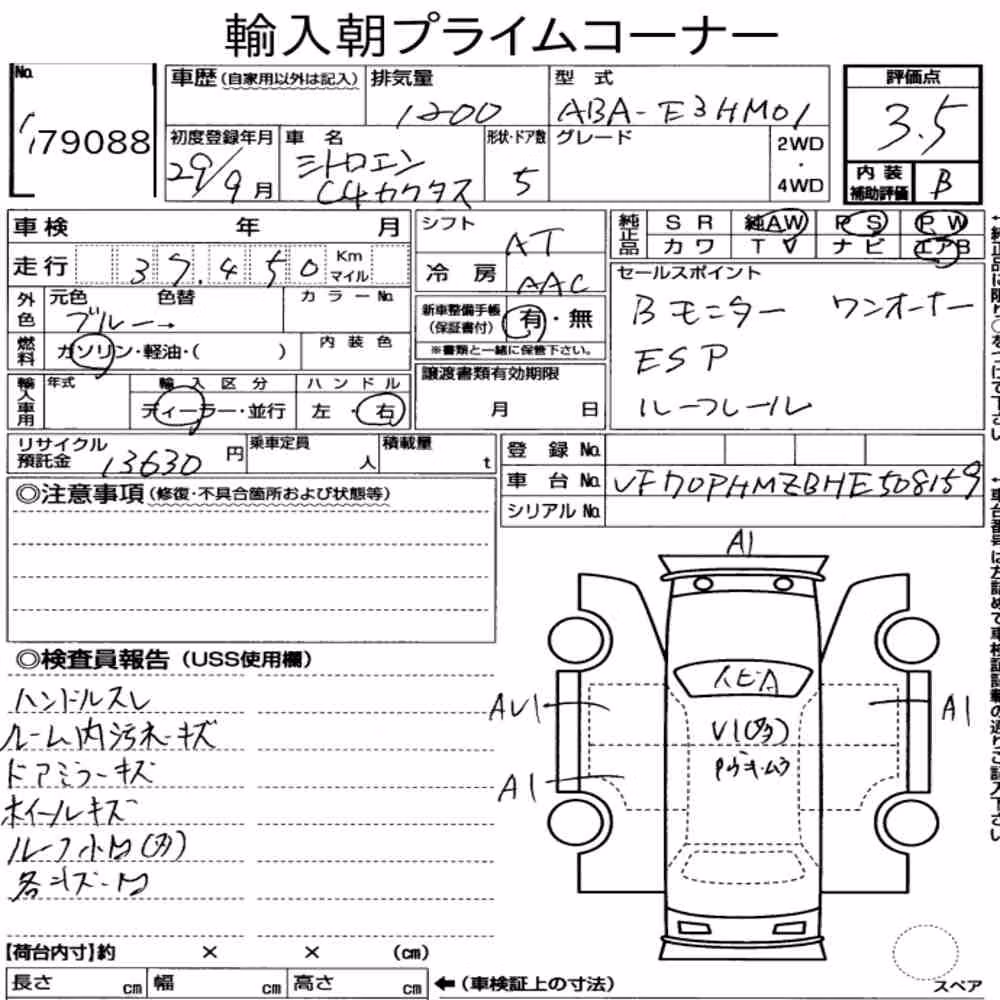 輸入朝プライムコーナー
No. 79088
車歴(自家用以外は記入) 排気量 1200 型式 ABA-E3HM01 評価点 3.5
初度登録年月 29/9月 車名 シトロエン C4カクタス 形状・ドア数 5 グレード 2WD・4WD 内装補助評価 B
車検 年 月 シフト AT 純正品 SR 純AW PS PW
走行 37,450 Km マイル 冷房 AAC カワ TV ナビ エアB
外色 元色 ブルー 色替 カラーNo. 新車整備手帳(保証書付) 有・無 セールスポイント
※書類と一緒に保管下さい。
Bモニター ワンオーナー
ESP
ルーフレール
燃料 ガソリン・軽油・( ) 内装色 譲渡書類有効期限 月 日
輸入車用 年式 輸入区分 ディーラー・並行 ハンドル 左・右
リサイクル預託金 13630円 乗車定員 人 積載量 t 登録No.
車台No. VF70PHMZBHE508159
シリアルNo.
◎注意事項(修復・不具合箇所および状態等)
◎検査員報告(USS使用欄)
ハンドルスレ
ルーム内汚れキズ
ドアミラーキズ
ホイールキズ
A1
AU1
A1
A1
【荷台内寸】約 × × (cm)
長さ cm 幅 cm 高さ cm ←(車検証上の寸法) スペア